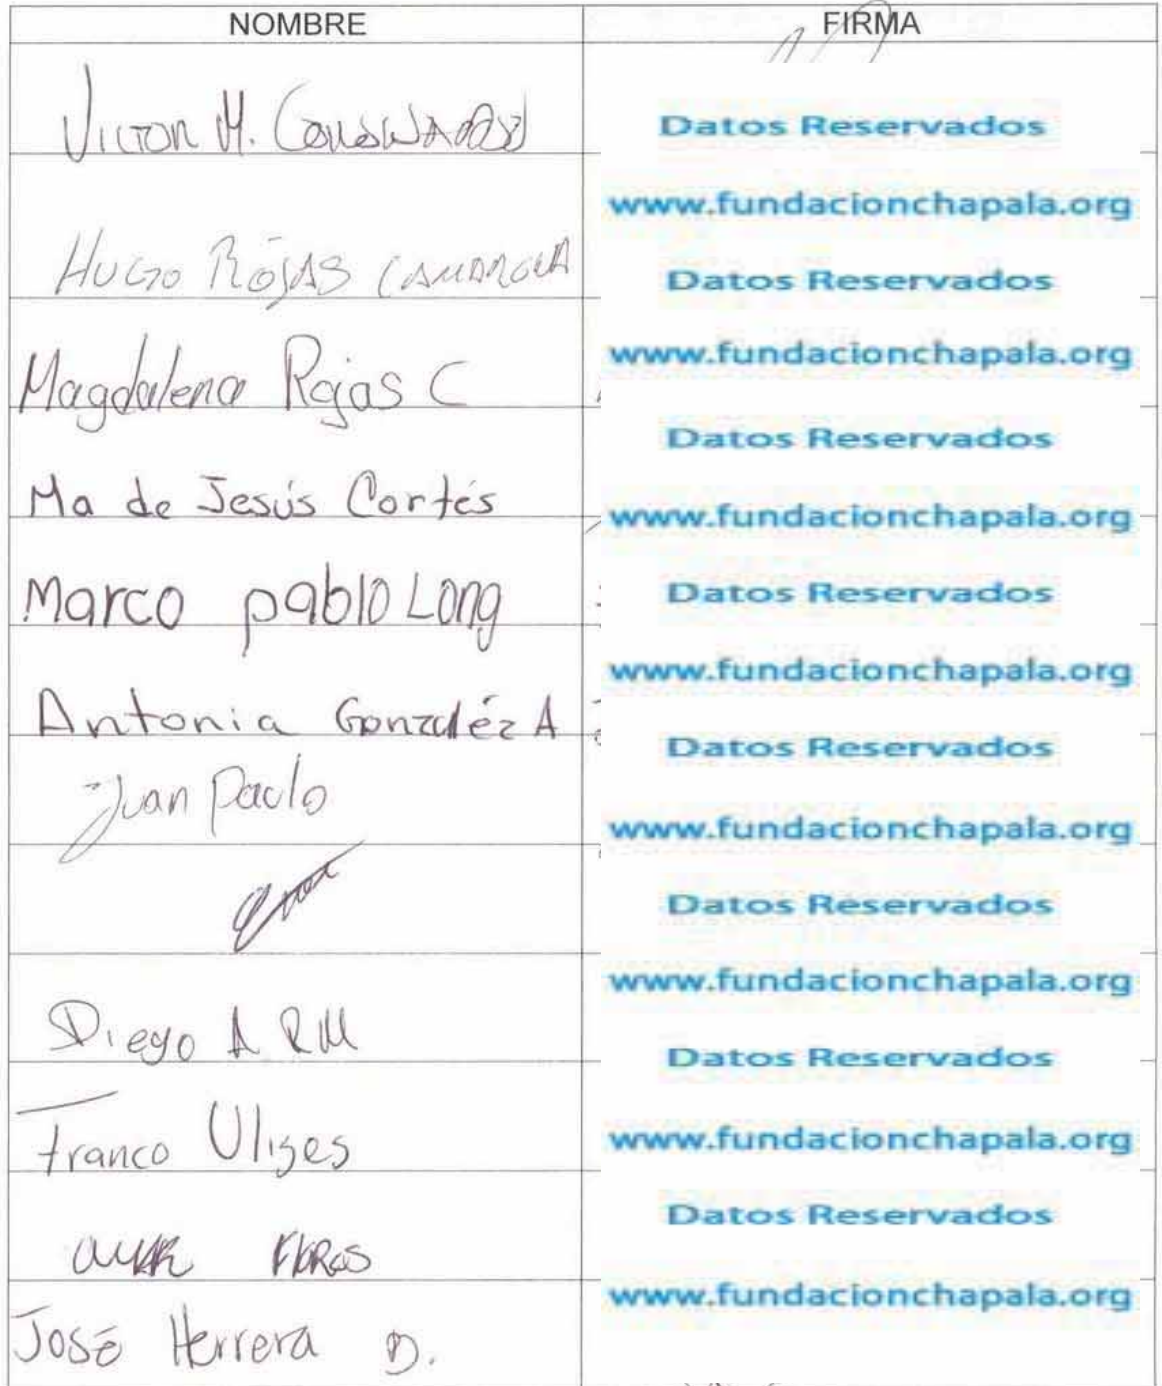 NOMBRE FIRMA
VICTOR M.
Datos Reservados
www.fundacionchapala.org
HUGO ROJAS
Datos Reservados
Magdalena Rojas C
www.fundacionchapala.org
Datos Reservados
Ma de Jesús Cortés
www.fundacionchapala.org
Marco pablo Long
Datos Reservados
www.fundacionchapala.org
Antonia Gonzaléz A
Datos Reservados
Juan Paulo
www.fundacionchapala.org
Datos Reservados
www.fundacionchapala.org
Diego A R M
Datos Reservados
Franco Ulises
www.fundacionchapala.org
Datos Reservados
FloRes
www.fundacionchapala.org
José Herrera D.